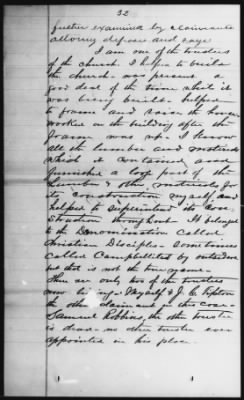 32
further examined by claimants
attorney deposes and says
I am one of the trustees
of the church. I helped to build
the church was present a
good deal of the time while it
was being built. helped
to frame and raise the house
worked on the building after the
frame was up. I know
all the lumber and materials
which it contained, and
furnished a large part of the
lumber & other materials for
its construction myself, and
helped to superintend its con
struction throughout. It belonged
to the Denomination called
Christian Disciples sometimes
called Campbellites by outsiders
but that is not the true name.
There are only two of the trustees
now living - Myself & J. C. Tipton
the other claimant in this case
Samuel Robbins, the other trustee
is dead - no other trustee ever
appointed in his place.